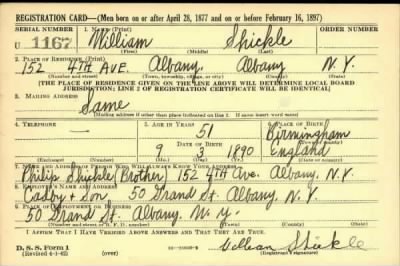 REGISTRATION CARD—(Men born on or after April 28, 1877 and on or before February 16, 1897)
SERIAL NUMBER 1. NAME (Print) ORDER NUMBER
U 1167 William Shickle
(First) (Middle) (Last)
2. PLACE OF RESIDENCE (Print)
152 4TH AVE. Albany, Albany N.Y.
(Number and street) (Town, township, village, or city) (County) (State)
[THE PLACE OF RESIDENCE GIVEN ON THE LINE ABOVE WILL DETERMINE LOCAL BOARD
JURISDICTION; LINE 2 OF REGISTRATION CERTIFICATE WILL BE IDENTICAL]
3. MAILING ADDRESS
Same
[Mailing address if other than place indicated on line 2. If same insert word same]
4. TELEPHONE 5. AGE IN YEARS 6. PLACE OF BIRTH
— 51 Birmingham
DATE OF BIRTH
9 3 1890 England
7. NAME AND ADDRESS OF PERSON WHO WILL ALWAYS KNOW YOUR ADDRESS
Philip Shickle Brother, 152 4TH Ave. Albany, N.Y.
8. EMPLOYER'S NAME AND ADDRESS
Cadby & Son, 50 Grand St. Albany, N.Y.
9. PLACE OF EMPLOYMENT OR BUSINESS
50 Grand St. Albany N.Y.
(Number and street or R. F. D. number) (Town) (County) (State)
I AFFIRM THAT I HAVE VERIFIED ABOVE ANSWERS AND THAT THEY ARE TRUE.
D. S. S. Form 1
(Revised 4-1-42) (over) William Shickle
(Registrant's signature)